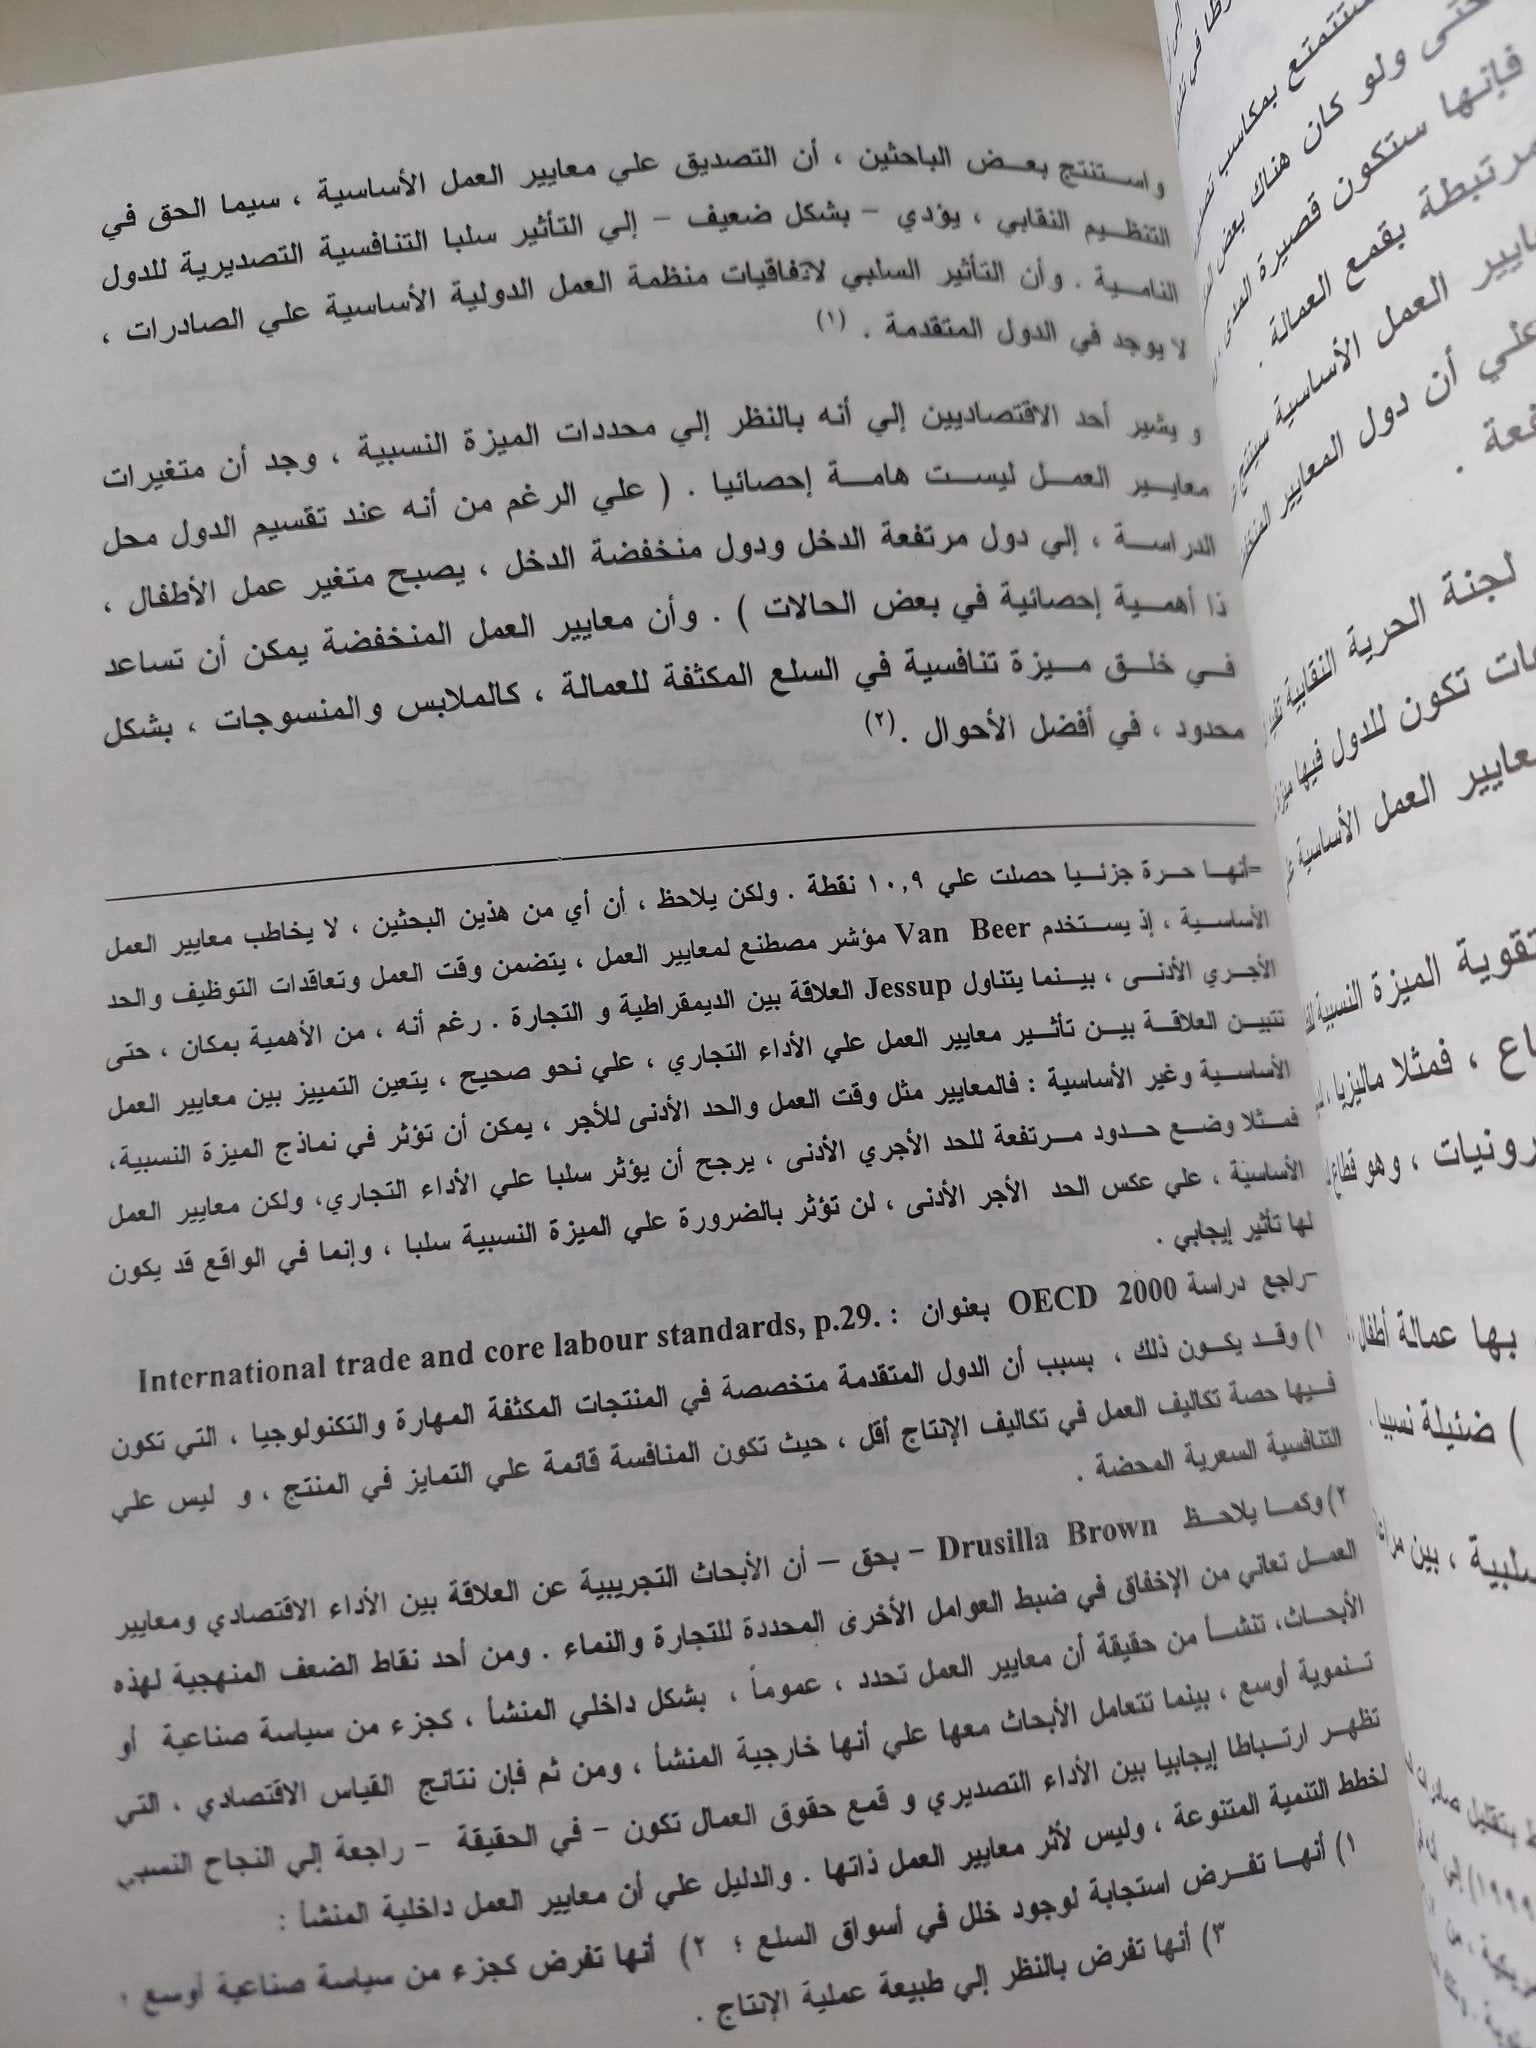 واستنتج بعض الباحثين ، أن التصديق علي معايير العمل الأساسية ، سيما الحق في
التنظيم النقابي ، يؤدي – بشكل ضعيف – إلي التأثير سلبا التنافسية التصديرية للدول
النامية . وأن التأثير السلبي لاتفاقيات منظمة العمل الدولية الأساسية علي الصادرات ،
لا يوجد في الدول المتقدمة . (١)
و يشير أحد الاقتصاديين إلي أنه بالنظر إلي محددات الميزة النسبية ، وجد أن متغيرات
معايير العمل ليست هامة إحصائيا . ( علي الرغم من أنه عند تقسيم الدول محل
الدراسة ، إلي دول مرتفعة الدخل ودول منخفضة الدخل ، يصبح متغير عمل الأطفال ،
ذا أهمية إحصائية في بعض الحالات ) . وأن معايير العمل المنخفضة يمكن أن تساعد
في خلق ميزة تنافسية في السلع المكثفة للعمالة ، كالملابس والمنسوجات ، بشكل
محدود ، في أفضل الأحوال .(٢)
=أنها حرة جزئيا حصلت علي ١٠,٩ نقطة . ولكن يلاحظ ، أن أي من هذين البحثين ، لا يخاطب معايير العمل
الأساسية ، إذ يستخدم Van Beer مؤشر مصطنع لمعايير العمل ، يتضمن وقت العمل وتعاقدات التوظيف والحد
الأجري الأدنى ، بينما يتناول Jessup العلاقة بين الديمقراطية و التجارة . رغم أنه ، من الأهمية بمكان ، حتى
نتبين العلاقة بين تأثير معايير العمل علي الأداء التجاري ، علي نحو صحيح ، يتعين التمييز بين معايير العمل
الأساسية وغير الأساسية : فالمعايير مثل وقت العمل والحد الأدنى للأجر ، يمكن أن تؤثر في نماذج الميزة النسبية،
فمثلا وضع حدود مرتفعة للحد الأجري الأدنى ، يرجح أن يؤثر سلبا علي الأداء التجاري، ولكن معايير العمل
الأساسية ، علي عكس الحد الأجر الأدنى ، لن تؤثر بالضرورة علي الميزة النسبية سلبا ، وإنما في الواقع قد يكون
لها تأثير إيجابي .
-راجع دراسة OECD 2000 بعنوان : International trade and core labour standards, p.29.
١) وقد يكون ذلك ، بسبب أن الدول المتقدمة متخصصة في المنتجات المكثفة المهارة والتكنولوجيا ، التي تكون
فيها حصة تكاليف العمل في تكاليف الإنتاج أقل ، حيث تكون المنافسة قائمة علي التمايز في المنتج ، و ليس علي
التنافسية السعرية المحضة .
٢) وكما يلاحظ Drusilla Brown – بحق – أن الأبحاث التجريبية عن العلاقة بين الأداء الاقتصادي ومعايير
العمل تعاني من الإخفاق في ضبط العوامل الأخرى المحددة للتجارة والنماء . ومن أحد نقاط الضعف المنهجية لهذه
الأبحاث، تنشأ من حقيقة أن معايير العمل تحدد ، عموماً ، بشكل داخلي المنشأ ، كجزء من سياسة صناعية أو
تنموية أوسع ، بينما تتعامل الأبحاث معها علي أنها خارجية المنشأ ، ومن ثم فإن نتائج القياس الاقتصادي ، التي
تظهر ارتباطا إيجابيا بين الأداء التصديري و قمع حقوق العمال تكون – في الحقيقة – راجعة إلي النجاح النسبي
لخطط التنمية المتنوعة ، وليس لأثر معايير العمل ذاتها . والدليل علي أن معايير العمل داخلية المنشأ :
١) أنها تفرض استجابة لوجود خلل في أسواق السلع ؛ ٢) أنها تفرض كجزء من سياسة صناعية أوسع ؛
٣) أنها تفرض بالنظر إلي طبيعة عملية الإنتاج .
حتى ولو كان هناك بعض
فإنها ستكون قصيرة المدى
مرتبطة بقمع العمالة .
العمل الأساسية سينتج
علي أن دول المعايير
لجنة الحرية النقابية
تكون للدول فيها
معايير العمل الأساسية
تقوية الميزة النسبية
، فمثلا ماليزيا ،
، وهو قطاع
بها عمالة أطفال
) ضئيلة نسبيا .
، بين